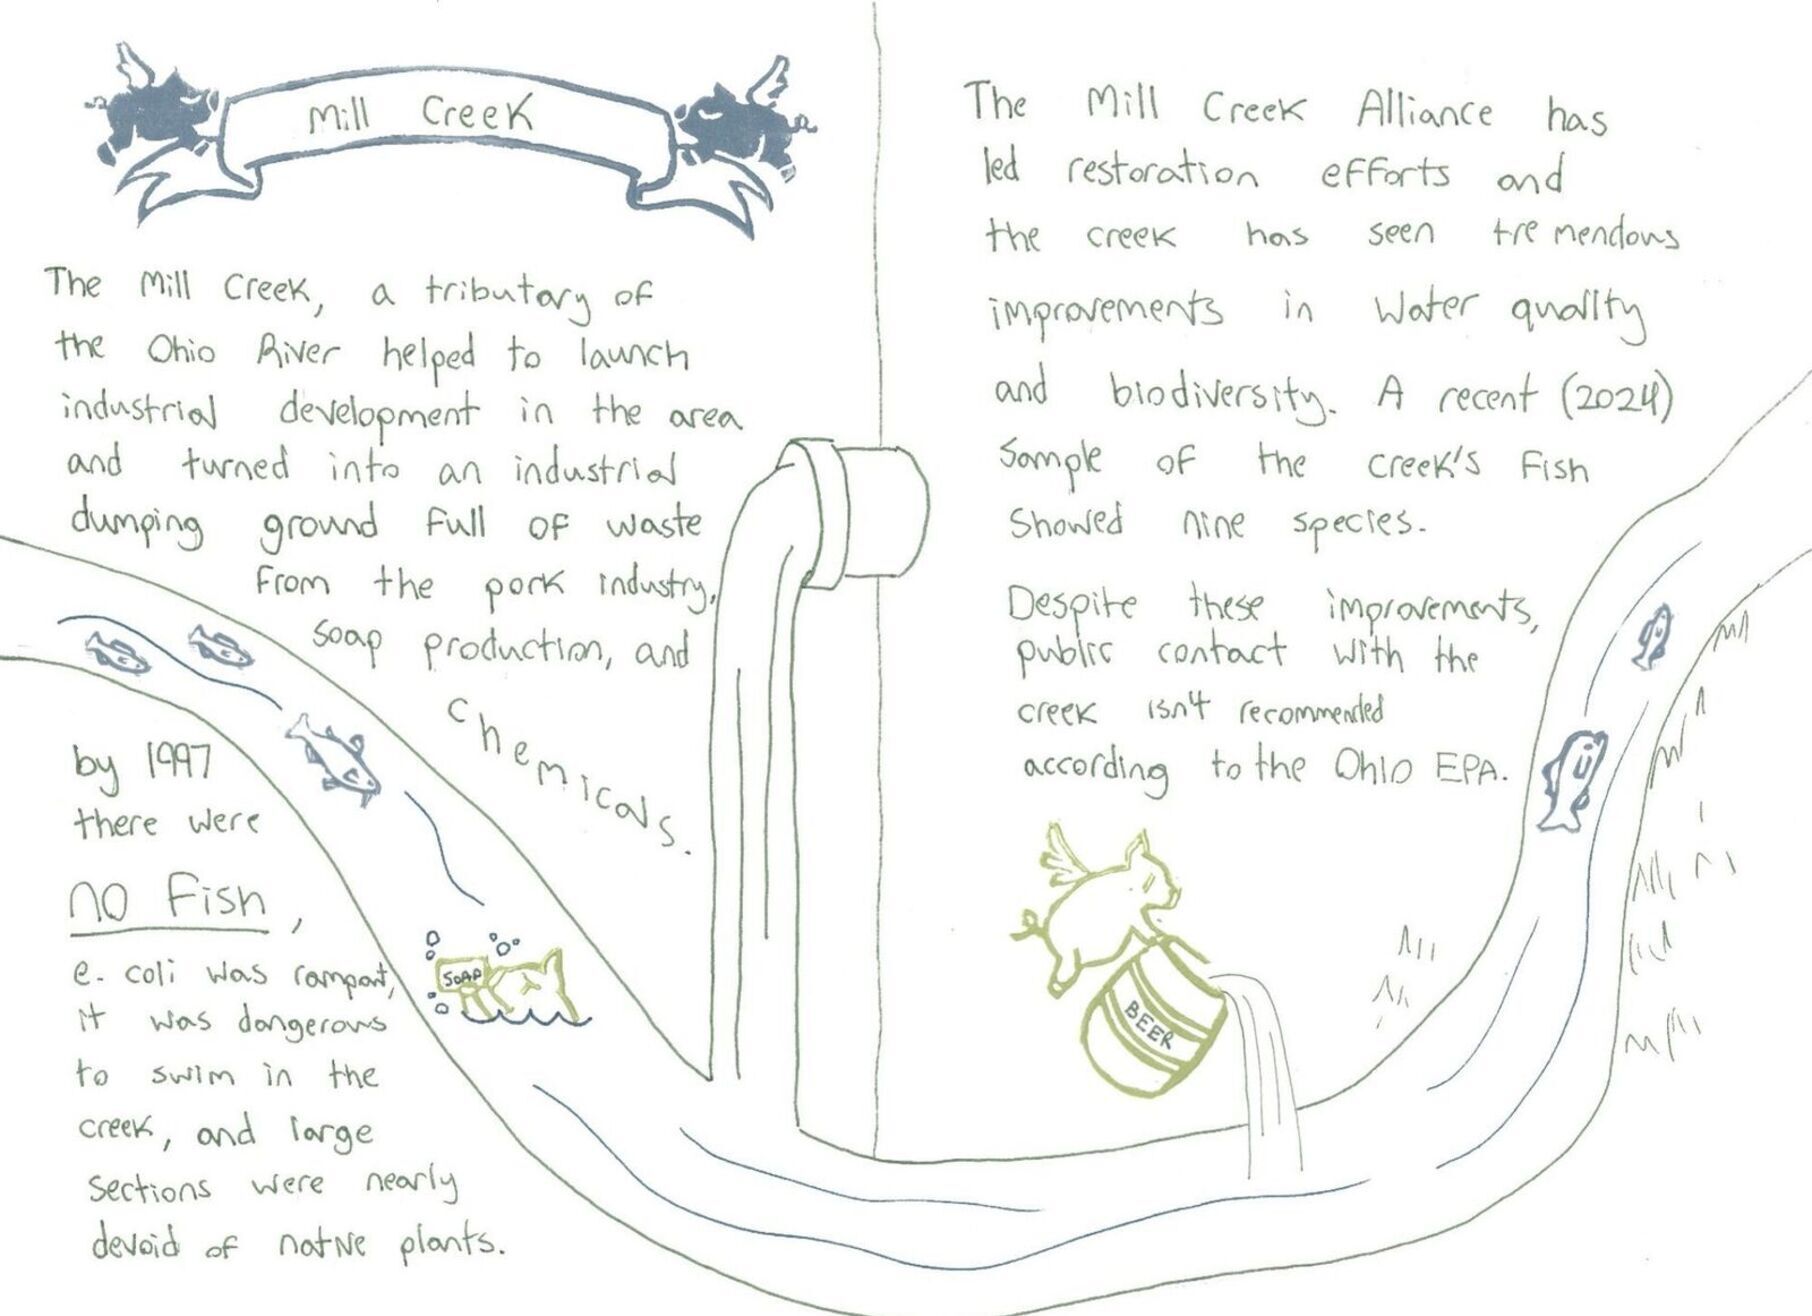 Mill Creek
The Mill Creek, a tributary of
the Ohio River helped to launch
industrial development in the area
and turned into an industrial
dumping ground full of waste
from the pork industry,
soap production, and
chemicals.
by 1997
there were
no fish,
e. coli was rampant,
it was dangerous
to swim in the
creek, and large
sections were nearly
devoid of native plants.
SOAP
The Mill Creek Alliance has
led restoration efforts and
the creek has seen tremendous
improvements in water quality
and biodiversity. A recent (2024)
sample of the creek's fish
showed nine species.
Despite these improvements,
public contact with the
creek isn't recommended
according to the Ohio EPA.
BEER